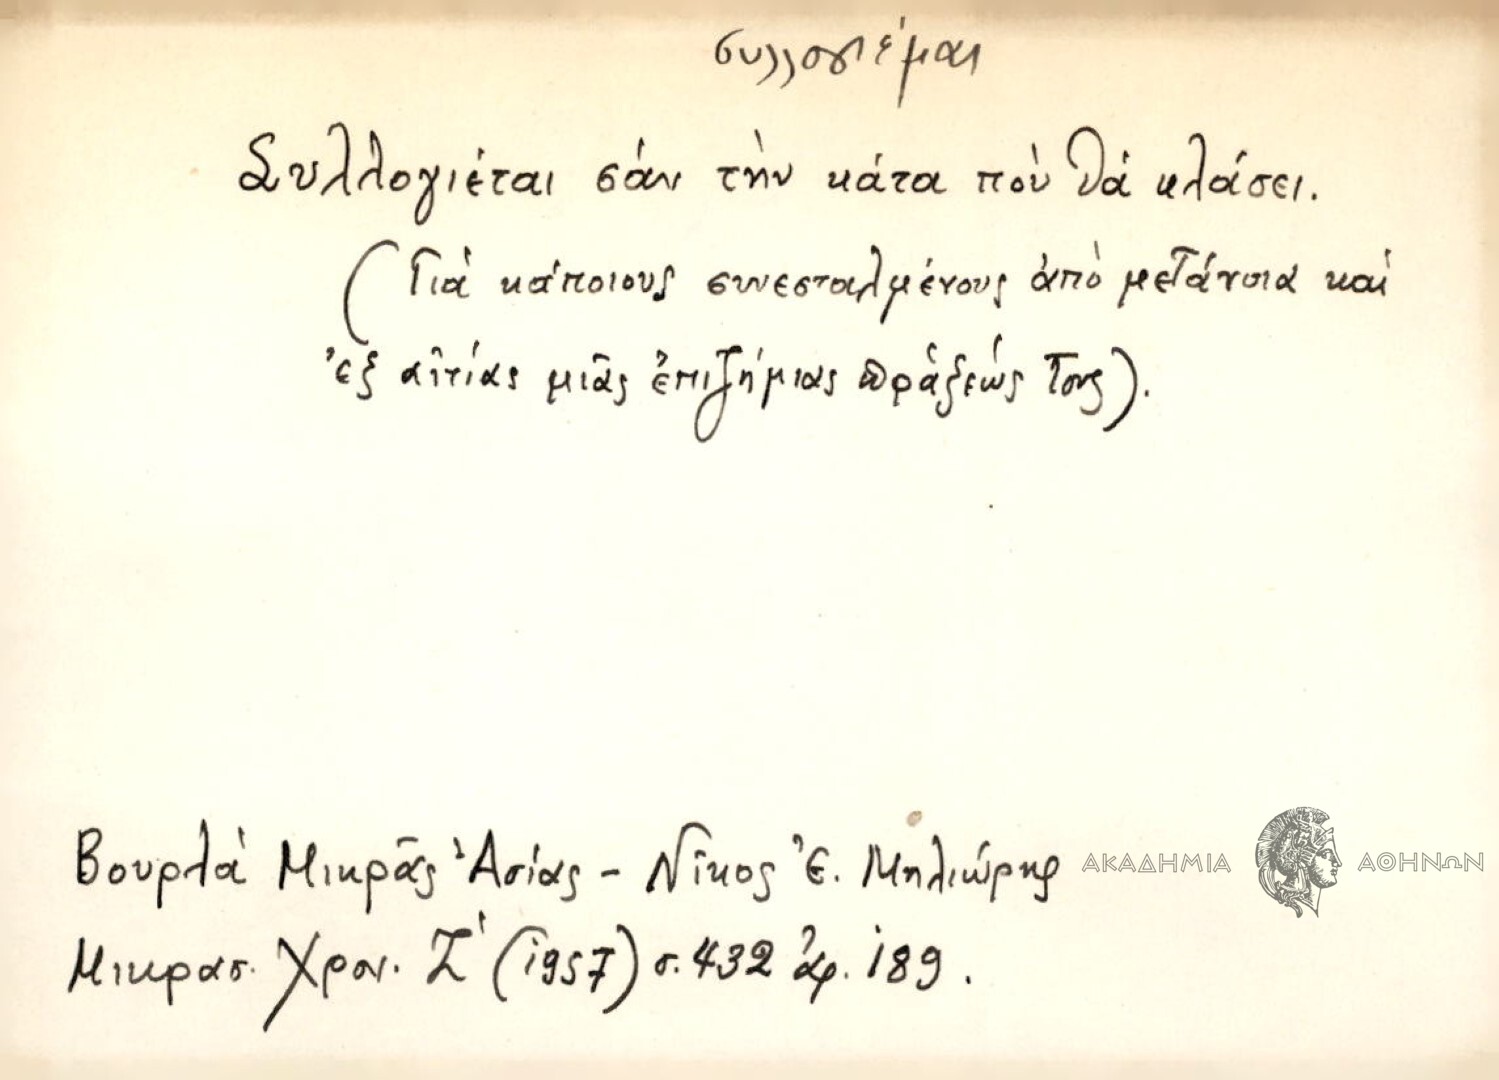 συλλογιέμαι
Συλλογιέται σάν τὴν κάτα ποὺ θά κλάσει.
(Γιὰ κάποιους συνεσταλμένους ἀπὸ μετάνοια καὶ
ἐξ αἰτίας μιᾶς ἐπιζήμιας πράξεώς τους).
Βουρλὰ Μικρᾶς Ἀσίας - Νῖκος Ἐ. Μηλιώρης
ΑΚΑΔΗΜΙΑ ΑΘΗΝΩΝ
Μικρασ. Χρον. Ζ' (1957) σ. 432 ἀρ. 189.